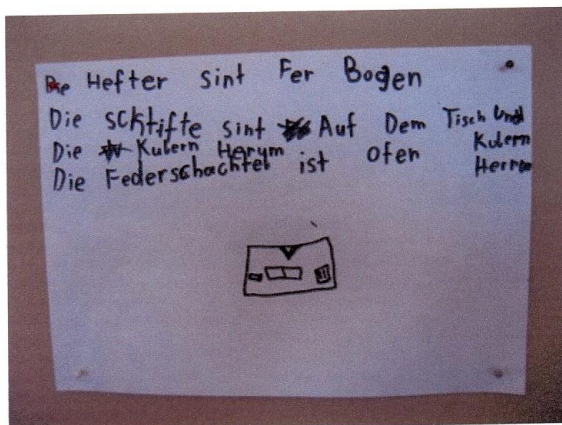 Die Hefter sint Fer Bogen
Die schtifte sint Auf Dem Tisch Und Kulern Herrum
Die Kulern Herym
Die Federschachtel ist Ofen